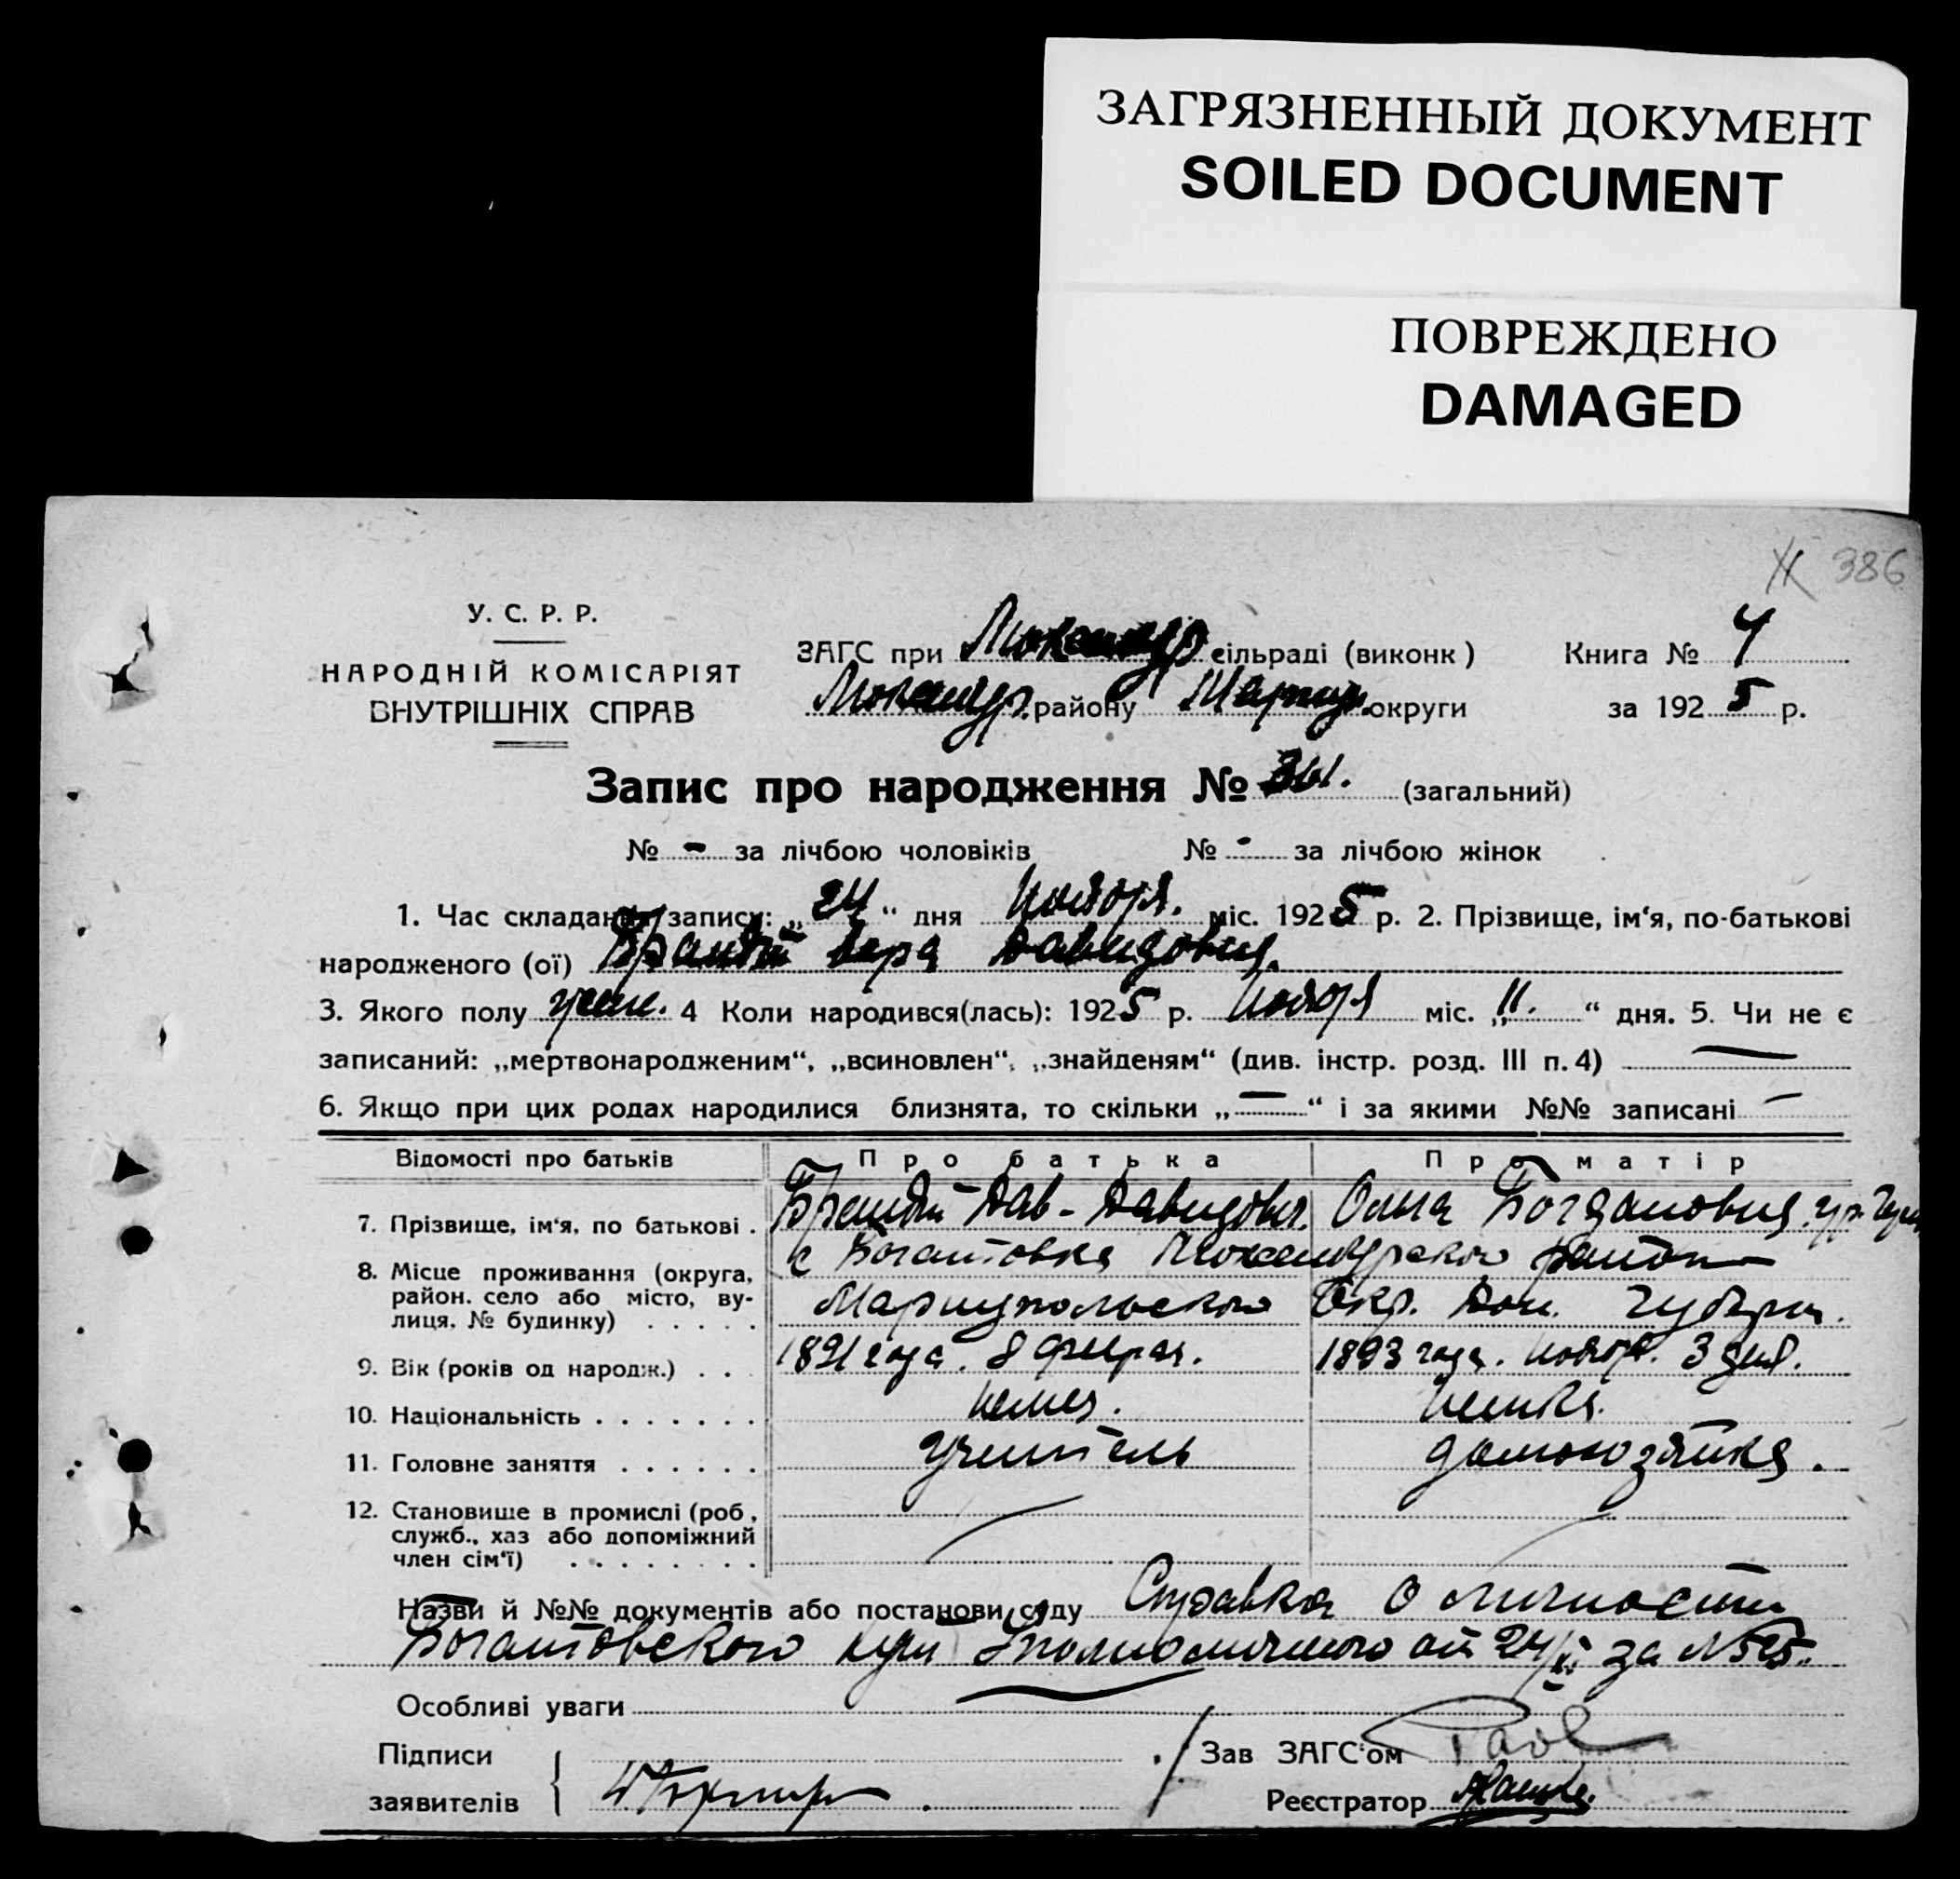 ЗАГРЯЗНЕННЫЙ ДОКУМЕНТ
SOILED DOCUMENT
ПОВРЕЖДЕНО
DAMAGED
386
У. С. Р. Р.
НАРОДНІЙ КОМІСАРІЯТ
ВНУТРІШНІХ СПРАВ
ЗАГС при сільраді (виконк) Книга №
району Мариуп. округи за 1925 р.
Запис про народження № (загальний)
№ - за лічбою чоловіків № - за лічбою жінок
1. Час складання запису: „24“ дня Ноября. міс. 1925 р. 2. Прізвище, ім‘я, по-батькові
народженого (ої) Вера Давидовна.
3. Якого полу жен. 4 Коли народився(лась): 1925 р. Ноября міс. „11.“ дня. 5. Чи не є
записаний: „мертвонародженим“, „всиновлен“, „знайденям“ (див. інстр. розд. III п. 4) —
6. Якщо при цих родах народилися близнята, то скільки „—“ і за якими №№ записані —
Відомості про батьків Про батька Про матір
7. Прізвище, ім‘я, по батькові . Дав- Давидович. Ольга Богдановна.
8. Місце проживання (округа, район. село або місто, вулиця. № будинку) . . . . . с Богатовка района
Мариупольского Окр. Дон. Губерн.
9. Вік (років од народж.) . . . 1891 года. 8 феврал. 1893 года. Ноября. 3 дня.
10. Національність . . . . . . . немец. немка.
11. Головне заняття . . . . . . учитель домохозяйка.
12. Становише в промислі (роб, служб., хаз або допоміжний член сім‘ї) . . . . . . . .
Назви й №№ документів або постанови суду Справка о личности
Богатовского Уполномоченого от 24/XI за № 525.
Особливі уваги
Підписи
заявителів
Зав ЗАГС‘ом
Реєстратор